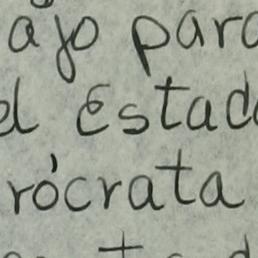 ajo para
el Estado
rócrata